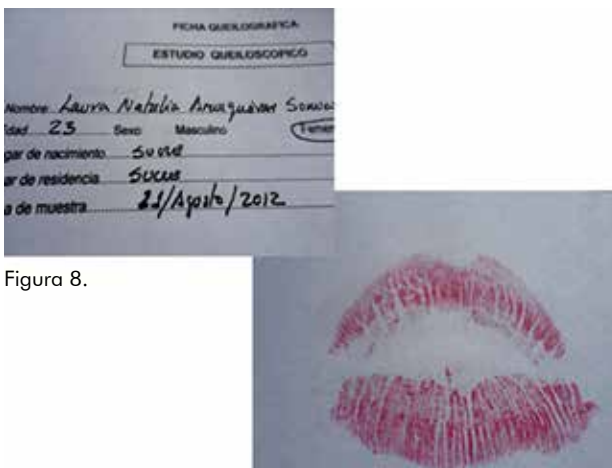 FICHA QUEILOGRAFICA
ESTUDIO QUEILOSCOPICO
Nombre Laura Natalia
Edad 23 Sexo Masculino
gar de nacimiento Sucre
ar de residencia Sucre
a de muestra 21/Agosto/2012
Figura 8.